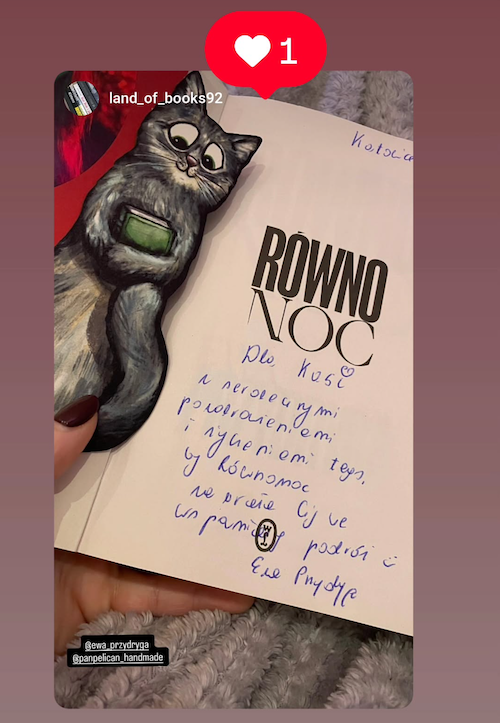 1
land_of_books92
RÓWNO
NOC
Dla Kasi
z serdecznymi
pozdrowieniami
i życzeniami tego,
by Równonoc
Cię we
podróż
Ewa Przydryga
@ewa_przydryga
@panpelican_handmade